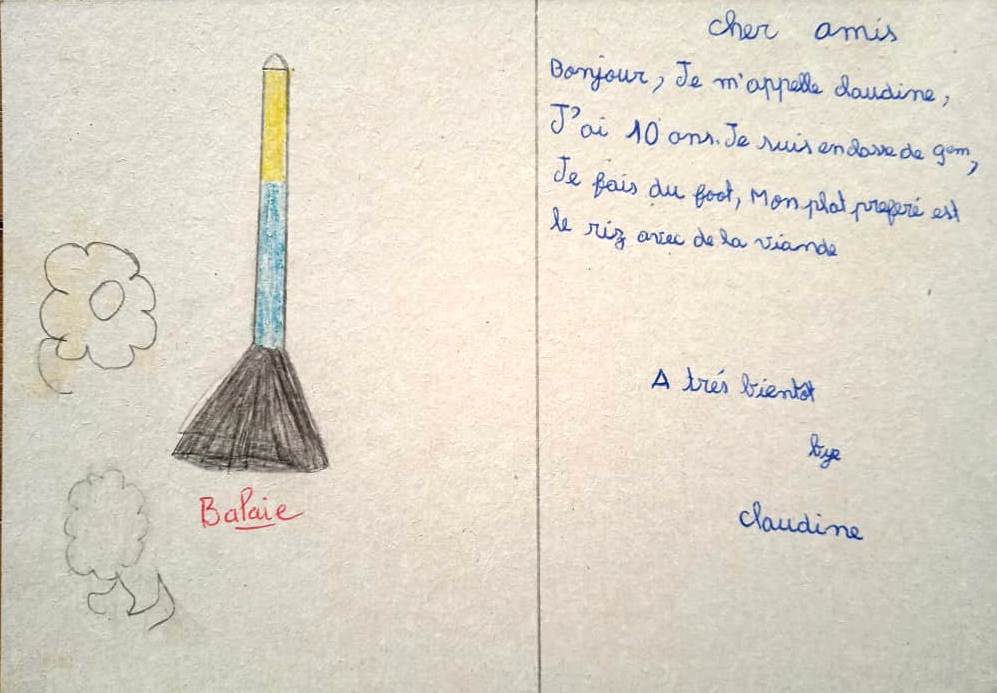 Balaie
cher amis
Bonjour, Je m'appelle claudine,
J'ai 10 ans. Je suis en classe de 9em,
Je fais du foot, Mon plat preferé est
le riz avec de la viande
A trés bientôt
bye
claudine